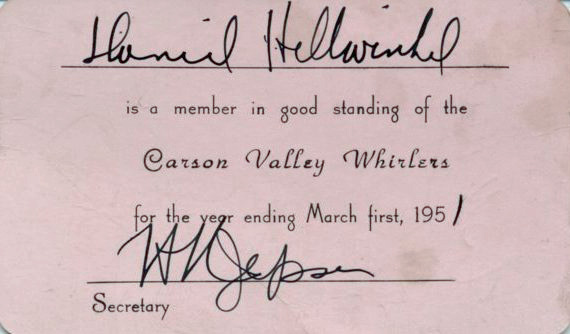 Daniel Hellwinkel
is a member in good standing of the
Carson Valley Whirlers
for the year ending March first, 1951
W H Jepsen
Secretary